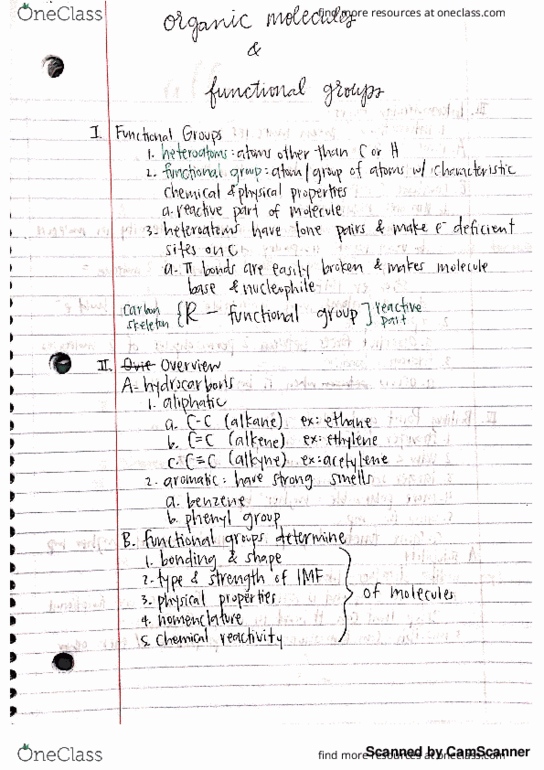 OneClass
find more resources at oneclass.com
organic molecules
&
functional groups
I. Functional Groups
1. heteroatoms: atoms other than C or H
2. functional group: atom/group of atoms w/ characteristic
chemical & physical properties
a. reactive part of molecule
3. heteroatoms have lone pairs & make e⁻ deficient
sites on C
a. π bonds are easily broken & makes molecule
base & nucleophile
carbon skeleton {R — functional group] reactive part
II. Ovie Overview
A. hydrocarbons
1. aliphatic
a. C-C (alkane) ex: ethane
b. C=C (alkene) ex: ethylene
c. C≡C (alkyne) ex: acetylene
2. aromatic: have strong smells
a. benzene
b. phenyl group
B. functional groups determine
1. bonding & shape
2. type & strength of IMF
3. physical properties
4. nomenclature
5. chemical reactivity
} of molecules
OneClass
find more resources at oneclass.com
Scanned by CamScanner